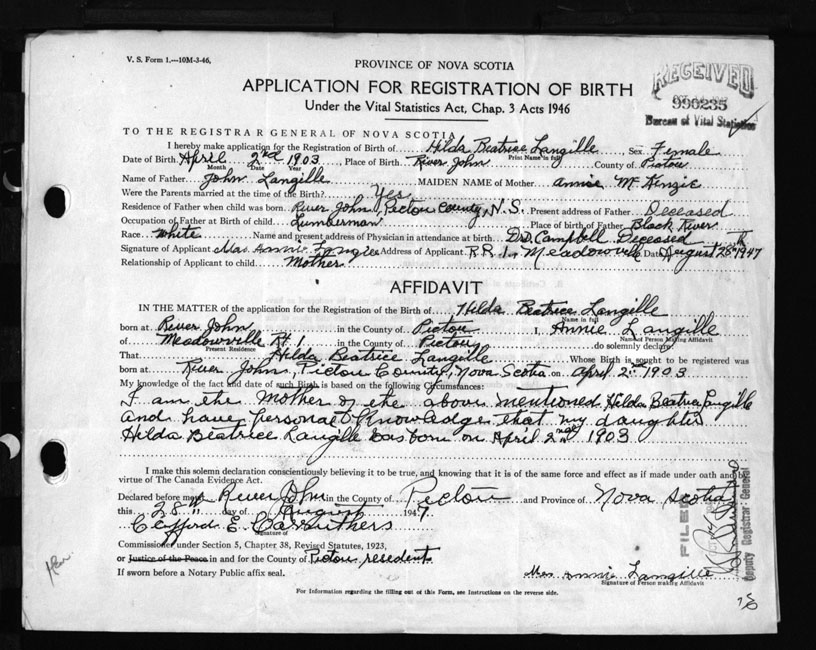 V. S. Form 1.—10M-3-46.
PROVINCE OF NOVA SCOTIA
APPLICATION FOR REGISTRATION OF BIRTH
Under the Vital Statistics Act, Chap. 3 Acts 1946
RECEIVED
990235
Bureau of Vital Statistics
TO THE REGISTRAR GENERAL OF NOVA SCOTIA
I hereby make application for the Registration of Birth of Hilda Beatrice Langille Sex Female
Print Name in full
Date of Birth April 2nd 1903 Place of Birth River John County of Pictou
Month Date Year
Name of Father John Langille MAIDEN NAME of Mother Annie McKenzie
Were the Parents married at the time of the Birth? Yes
Residence of Father when child was born River John, Pictou County, N.S. Present address of Father Deceased
Occupation of Father at Birth of child Lumberman Place of birth of Father Black River
Race White Name and present address of Physician in attendance at birth Dr D. Campbell Deceased
Signature of Applicant Mrs. Annie Langille Address of Applicant R.R.1. Meadowville Date August 28th 1947
Relationship of Applicant to child Mother
AFFIDAVIT
IN THE MATTER of the application for the Registration of Birth of Hilda Beatrice Langille
Name in full
born at River John in the County of Pictou I, Annie Langille
Name of Person Making Affidavit
of Meadowville Rt 1 in the County of Pictou do solemnly declare
Present Residence
That Hilda Beatrice Langille Whose Birth is sought to be registered was
born at River John, Pictou County, Nova Scotia on April 2nd 1903
My knowledge of the fact and date of such Birth is based on the following Circumstances:
I am the Mother of the above mentioned Hilda Beatrice Langille
and have personal knowledge that my daughter
Hilda Beatrice Langille was born on April 2nd 1903
I make this solemn declaration conscientiously believing it to be true, and knowing that it is of the same force and effect as if made under oath and by
virtue of The Canada Evidence Act.
Declared before me at River John in the County of Pictou and Province of Nova Scotia
this 28th day of August 1947.
Clifford E. Carruthers
Signature of
Commissioner under Section 5, Chapter 38, Revised Statutes, 1923,
or Justice of the Peace in and for the County of Pictou resident
If sworn before a Notary Public affix seal.
Mrs Annie Langille
Signature of Person making Affidavit
For Information regarding the filling out of this Form, see Instructions on the reverse side.
FILED
Deputy Registrar General